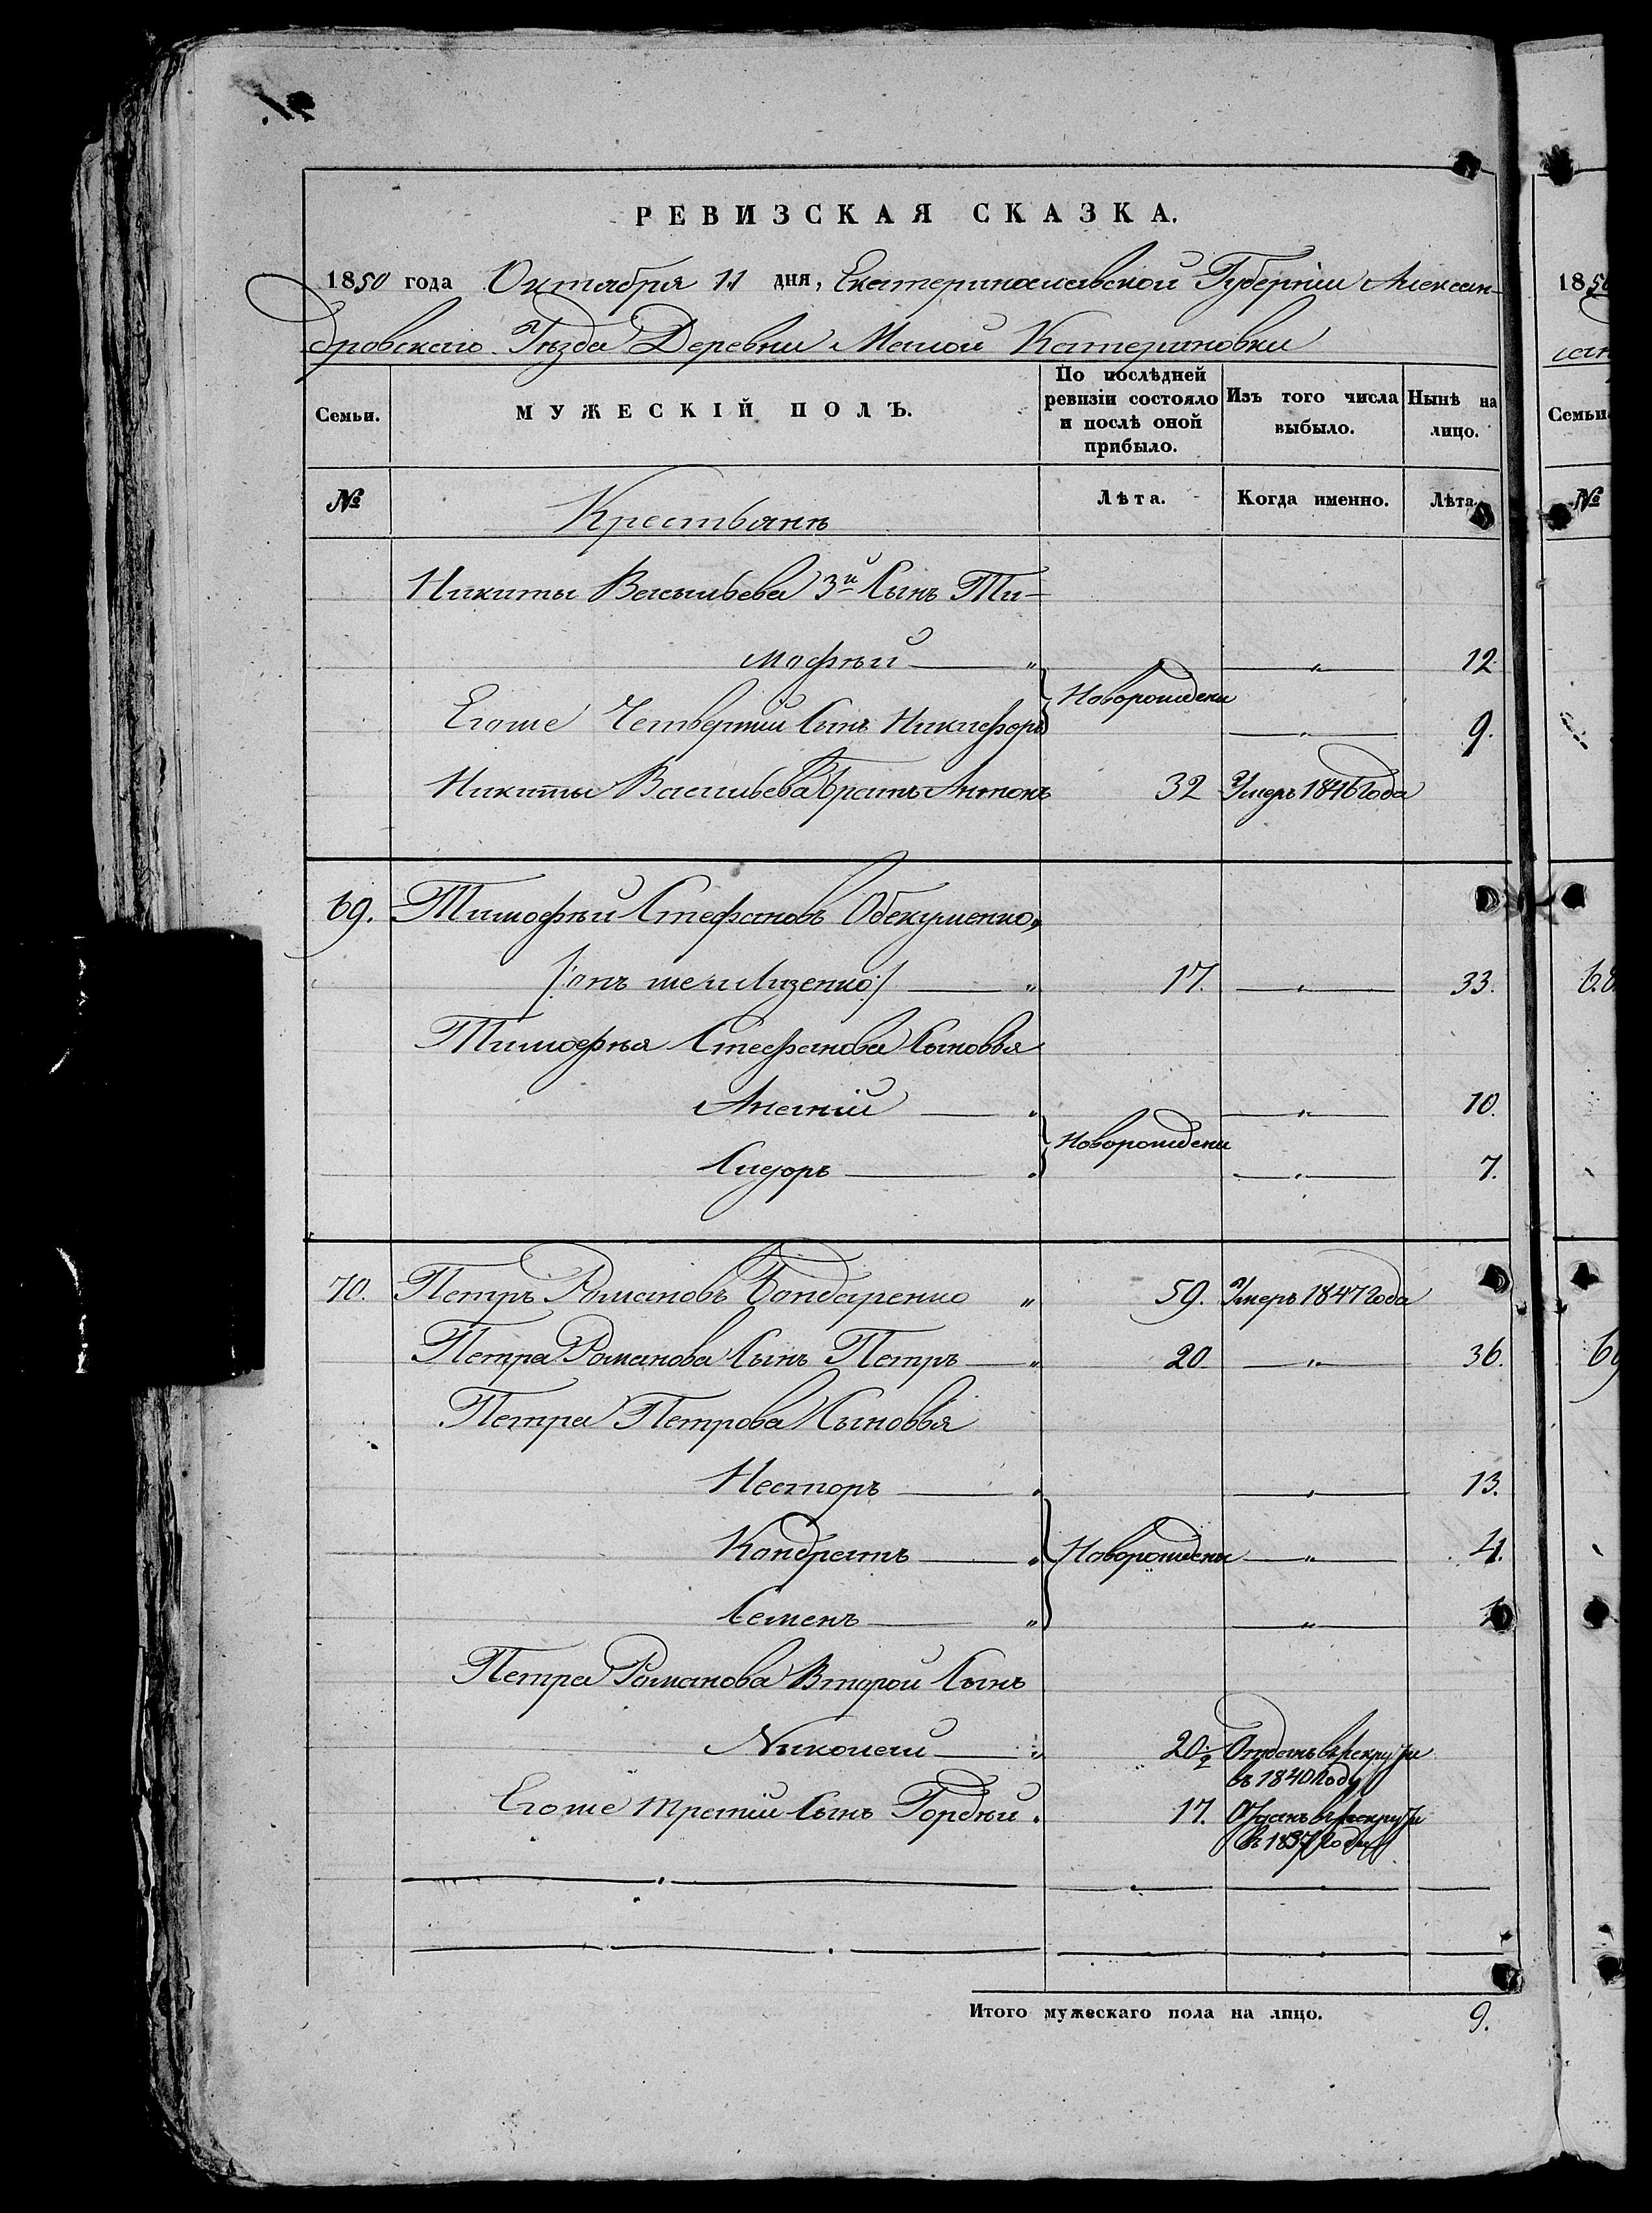 РЕВИЗСКАЯ СКАЗКА.
1850 года Октября 11 дня, Екатеринославской Губерніи Алексан-
дровскаго Уѣзда Деревни Малой Катериновки
Семьи. МУЖЕСКІЙ ПОЛЪ. По послѣдней ревизіи состояло и послѣ оной прибыло. Изъ того числа выбыло. Нынѣ на лицо.
№ Крестьянѣ Лѣта. Когда именно. Лѣта.
Никиты Васильева 3й Сынъ Ти-
мофѣй " 12.
Новорождени
Егоже Четвертій Сынъ Никифоръ " 9.
Никиты Васильева Братъ Антонъ 32 Умеръ 1846 Года
69. Тимофѣй Стефановъ Обекуменко,
/:онъ же и Лизенко:/ 17. " 33.
Тимофѣя Стефанова Сыновья
" 10.
Новорождени
Сидоръ " 7.
70. Петръ Романовъ Бондаренко " 59. Умеръ 1847 Года
Петра Романова Сынъ Петръ " 20. " 36.
Петра Петрова Сыновья
Несторъ " 13.
Кондратъ " Новорождены " 4.
Семенъ " "
Петра Романова Второй Сынъ
Николай " 20½ Отданъ въ рекруты
въ 1840 Году
Егоже третій Сынъ Гордѣй. 17. Отданъ въ рекруты
въ 1837 Году
Итого мужескаго пола на лицо. 9.
1850
Семьи
№
68.
69